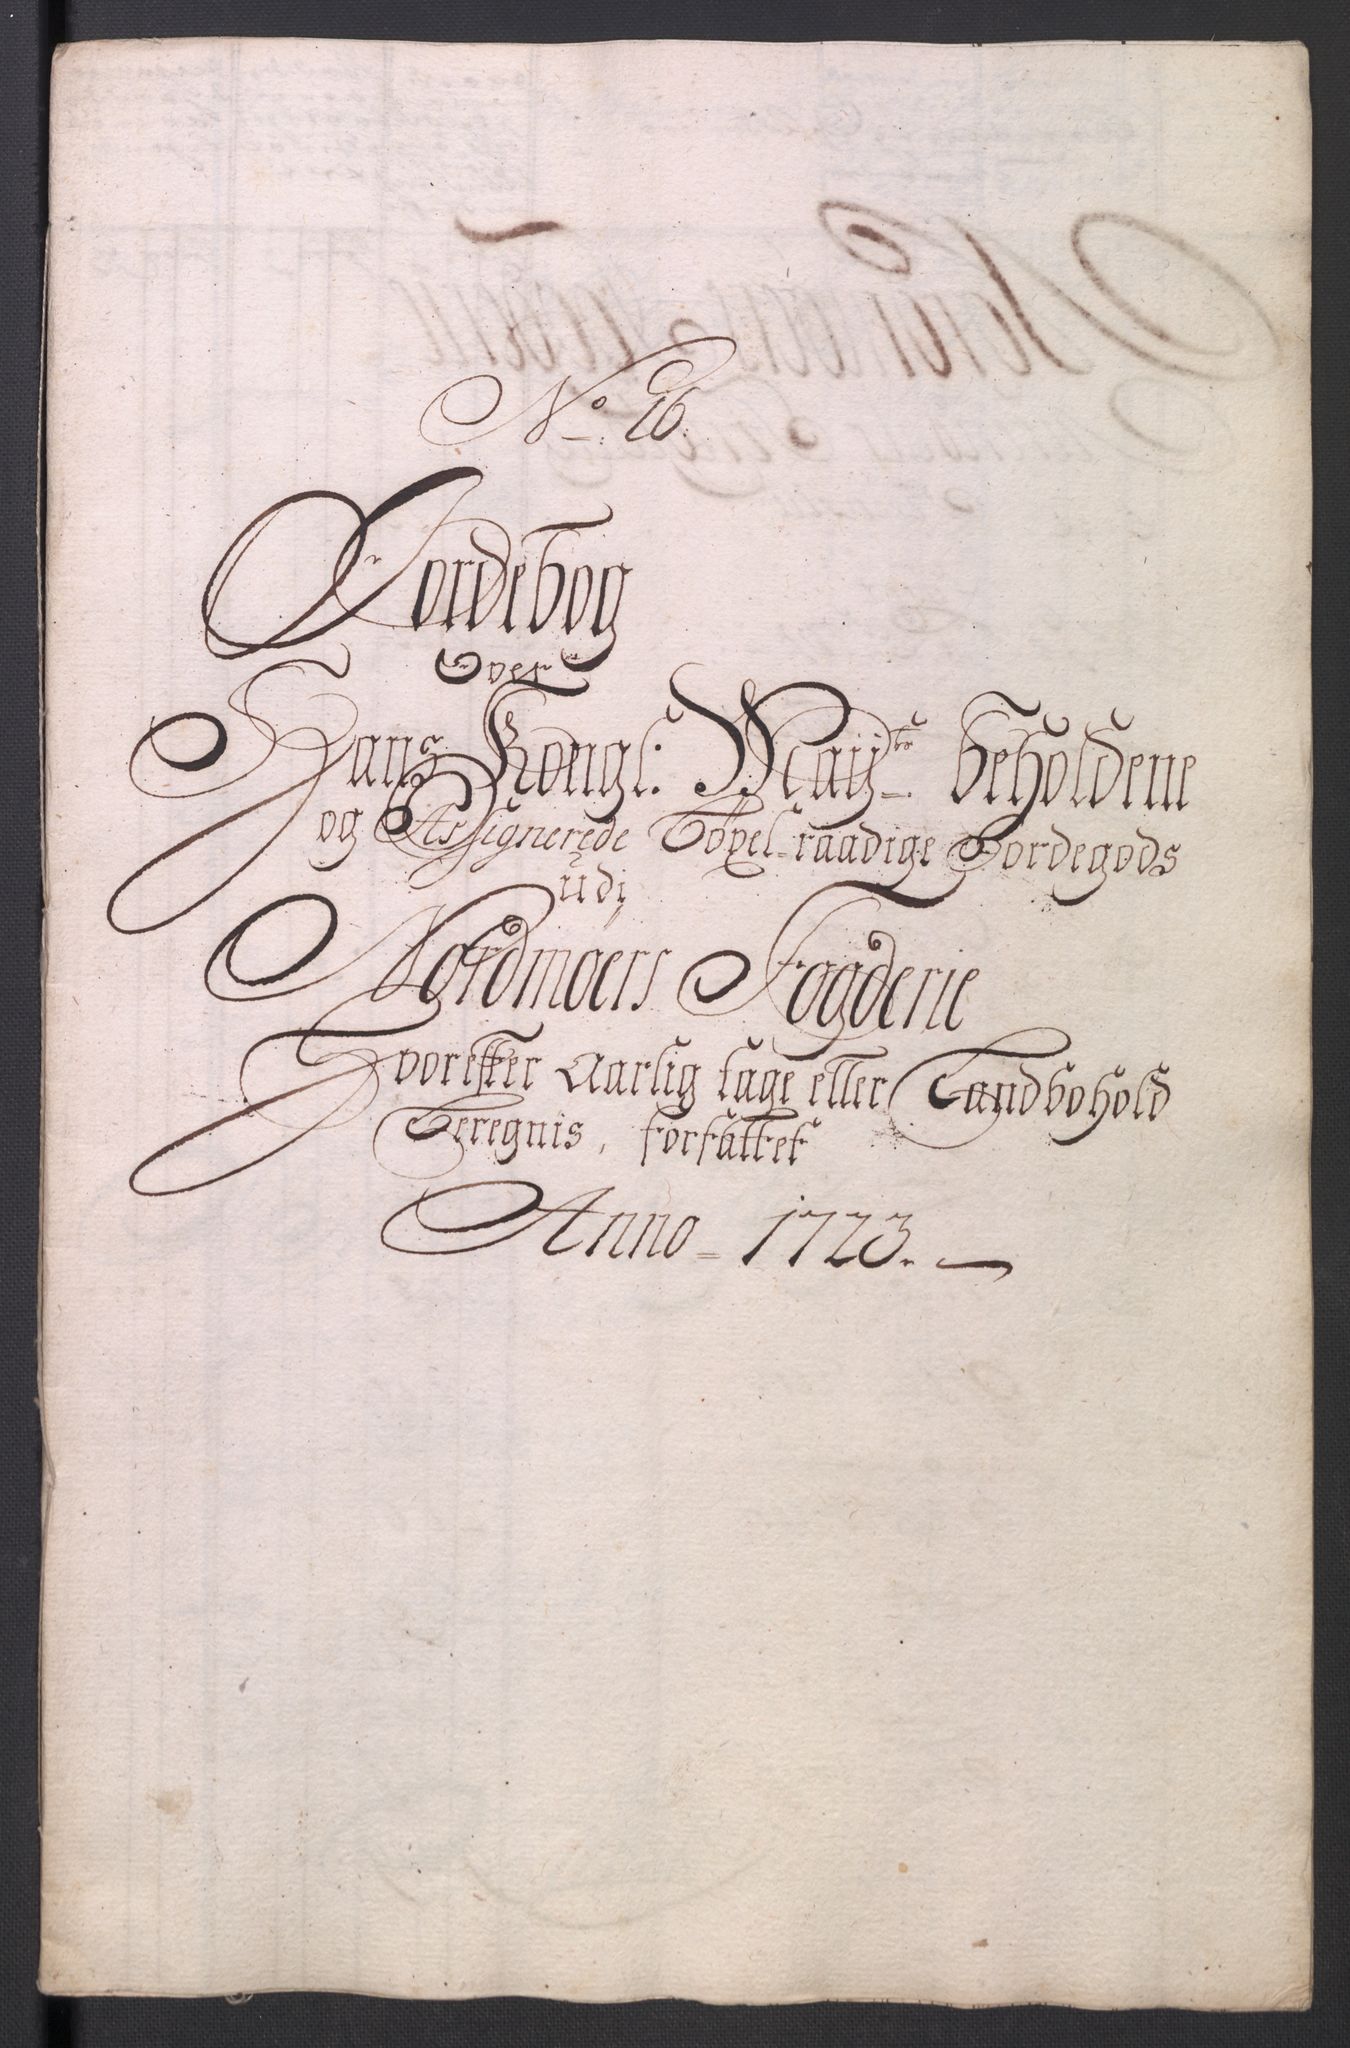 No. 16.
Jordebog
Over
Hans Kongl: Maÿts beholdene
og Assignerede Bøxel-raadige Jordegods
udj
Nordmøers Fogderie
Hvorefter Aarlig tage eller Landbohold
Beregnis, forfattet
Anno - 1723.